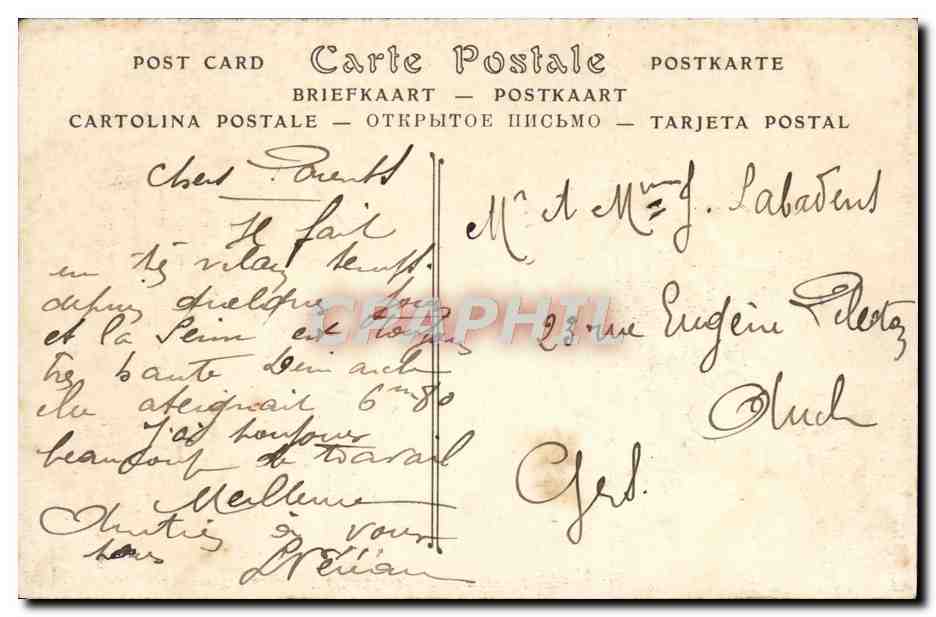 POST CARD Carte Postale POSTKARTE
BRIEFKAART — POSTKAART
CARTOLINA POSTALE — ОТКРЫТОЕ ПИСЬМО — TARJETA POSTAL
Chers Parents
Il fait
un très vilain temps
depuis quelques jours
et la Seine est toujours
très haute Dimanche
elle ateignait 6m80
J'ai toujours
beaucoup de travail
Meilleures
Amitiés à vous
tous
Mr et Mme J. Labadens
23 rue Eugène
Auch
Gers.
CPAPHIL